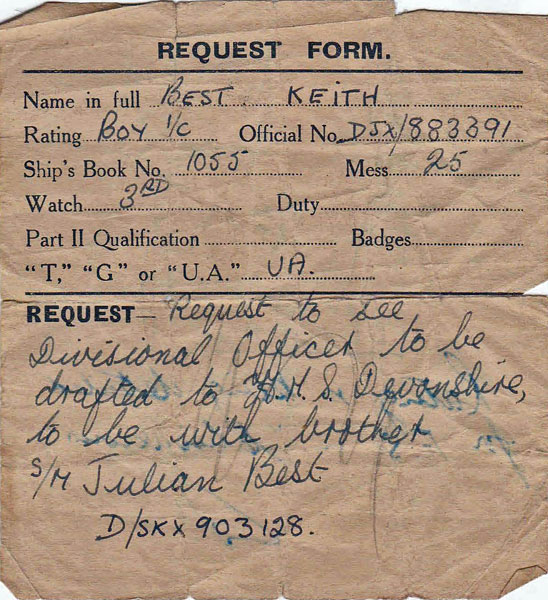 REQUEST FORM.
Name in full BEST KEITH
Rating BOY 1/C Official No. DJX/883391
Ship's Book No. 1055 Mess 25
Watch 3RD Duty
Part II Qualification Badges
"T," "G" or "U.A." UA.
REQUEST— Request to see
Divisional Officer to be
drafted to H.M.S. Devonshire,
to be with brother
S/M Julian Best
D/SKX 903128.